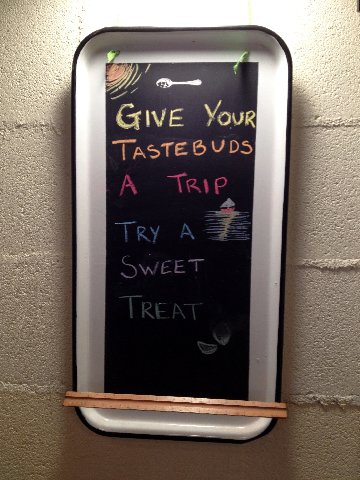 GIVE YOUR
TASTEBUDS
A TRIP
TRY A
SWEET
TREAT